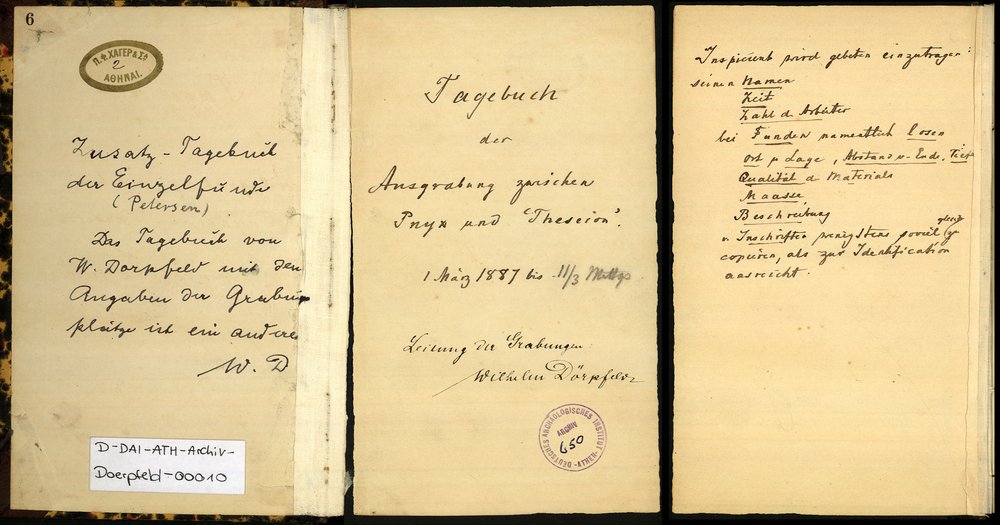 6
Π.Φ. ΧΑΓΕΡ & Σᵃ
2
ΑΘΗΝΑΙ.
Zusatz-Tagebuch
der Einzelfunde
(Petersen)
Das Tagebuch von
W. Dörpfeld mit den
Angaben der Grabungs
plätze ist ein anderes
W. D
D-DAI-ATH-Archiv-
Doerpfeld-00010
Tagebuch
der
Ausgrabung zwischen
Pnyx und "Theseion".
1 März 1887 bis 11/3
Leitung der Grabungen:
Wilhelm Dörpfeld
DEUTSCHES ARCHÄOLOGISCHES INSTITUT
ARCHIV
650
-ATHEN-
Inspicient wird gebeten einzutragen:
seinen Namen
Zeit
Zahl d. Arbeiter
bei Funden namentlich losen
Ort u Lage, Abstand v. Ende, Tiefe
Qualität d Materials
Maasse
Beschreibung
v. Inschriften wenigstens soviel gleich zu
copiren, als zur Identification
ausreicht.